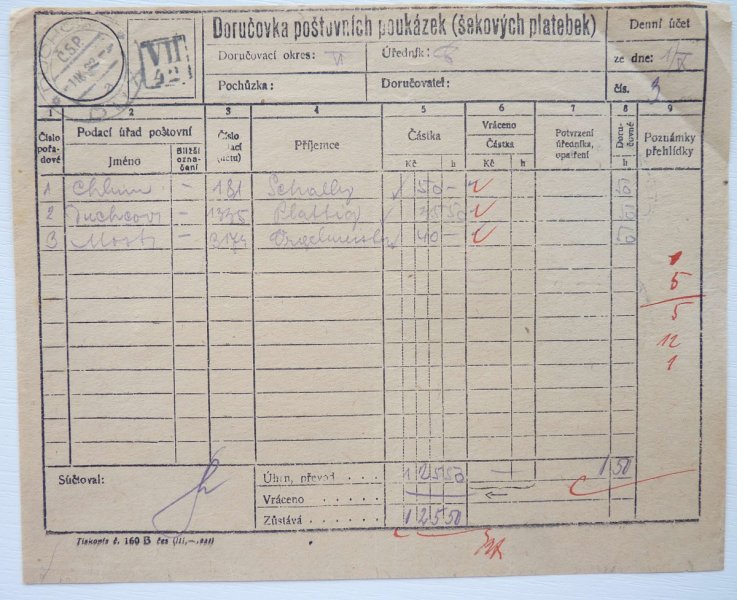 Doručovka poštovních poukázek (šekových platebek)
Denní účet
Doručovací okres: VI
Úředník:
ze dne: 1/X
Pochůzka:
Doručovatel:
čís. 3
ČSP
VII
42
1 2 3 4 5 6 7 8 9
Číslo pořadové
Podací úřad poštovní
Jméno
Bližší označení
Číslo
Příjemce
Částka
Kč h
Vráceno
Částka
Kč h
Potvrzení úředníka, opatření
Doručovné
h
Poznámky přehlídky
1 Chlum - 181 50 - 50
2 Duchcov - 1335 Plattig 35 50 50
3 Most - 40 - 50
1
5
5
12
1
Súčtoval:
Úhrn, převod . . . 125 50 — 1 50
Vráceno . . . . .
Zůstává . . . . . 125 50
Tiskopis č. 160 B čes